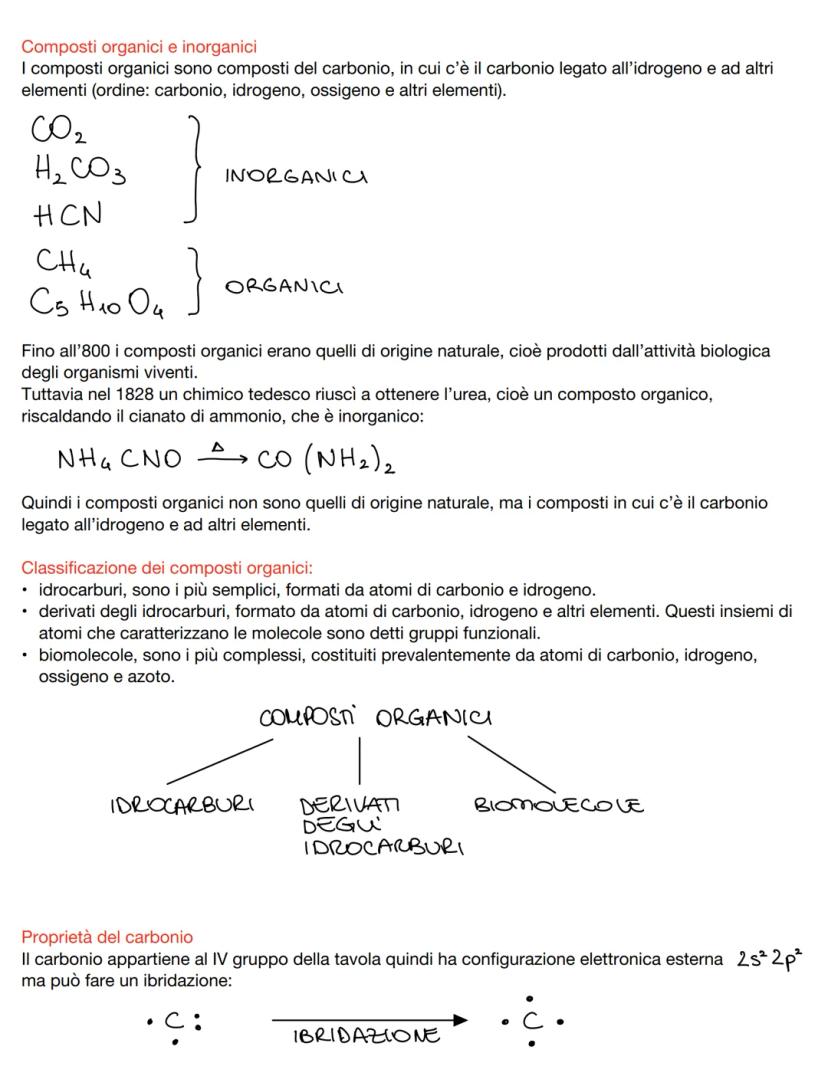 Composti organici e inorganici
I composti organici sono composti del carbonio, in cui c'è il carbonio legato all'idrogeno e ad altri
elementi (ordine: carbonio, idrogeno, ossigeno e altri elementi).
CO₂
H₂CO₃
INORGANICI
HCN
CH₄
C₅H₁₀O₄
ORGANICI
Fino all'800 i composti organici erano quelli di origine naturale, cioè prodotti dall'attività biologica
degli organismi viventi.
Tuttavia nel 1828 un chimico tedesco riuscì a ottenere l'urea, cioè un composto organico,
riscaldando il cianato di ammonio, che è inorganico:
NH₄CNO Δ→ CO(NH₂)₂
Quindi i composti organici non sono quelli di origine naturale, ma i composti in cui c'è il carbonio
legato all'idrogeno e ad altri elementi.
Classificazione dei composti organici:
• idrocarburi, sono i più semplici, formati da atomi di carbonio e idrogeno.
• derivati degli idrocarburi, formato da atomi di carbonio, idrogeno e altri elementi. Questi insiemi di
atomi che caratterizzano le molecole sono detti gruppi funzionali.
• biomolecole, sono i più complessi, costituiti prevalentemente da atomi di carbonio, idrogeno,
ossigeno e azoto.
COMPOSTI ORGANICI
IDROCARBURI
DERIVATI
DEGLI
IDROCARBURI
BIOMOLECOLE
Proprietà del carbonio
Il carbonio appartiene al IV gruppo della tavola quindi ha configurazione elettronica esterna 2s² 2p²
ma può fare un ibridazione:
C
IBRIDAZIONE
C